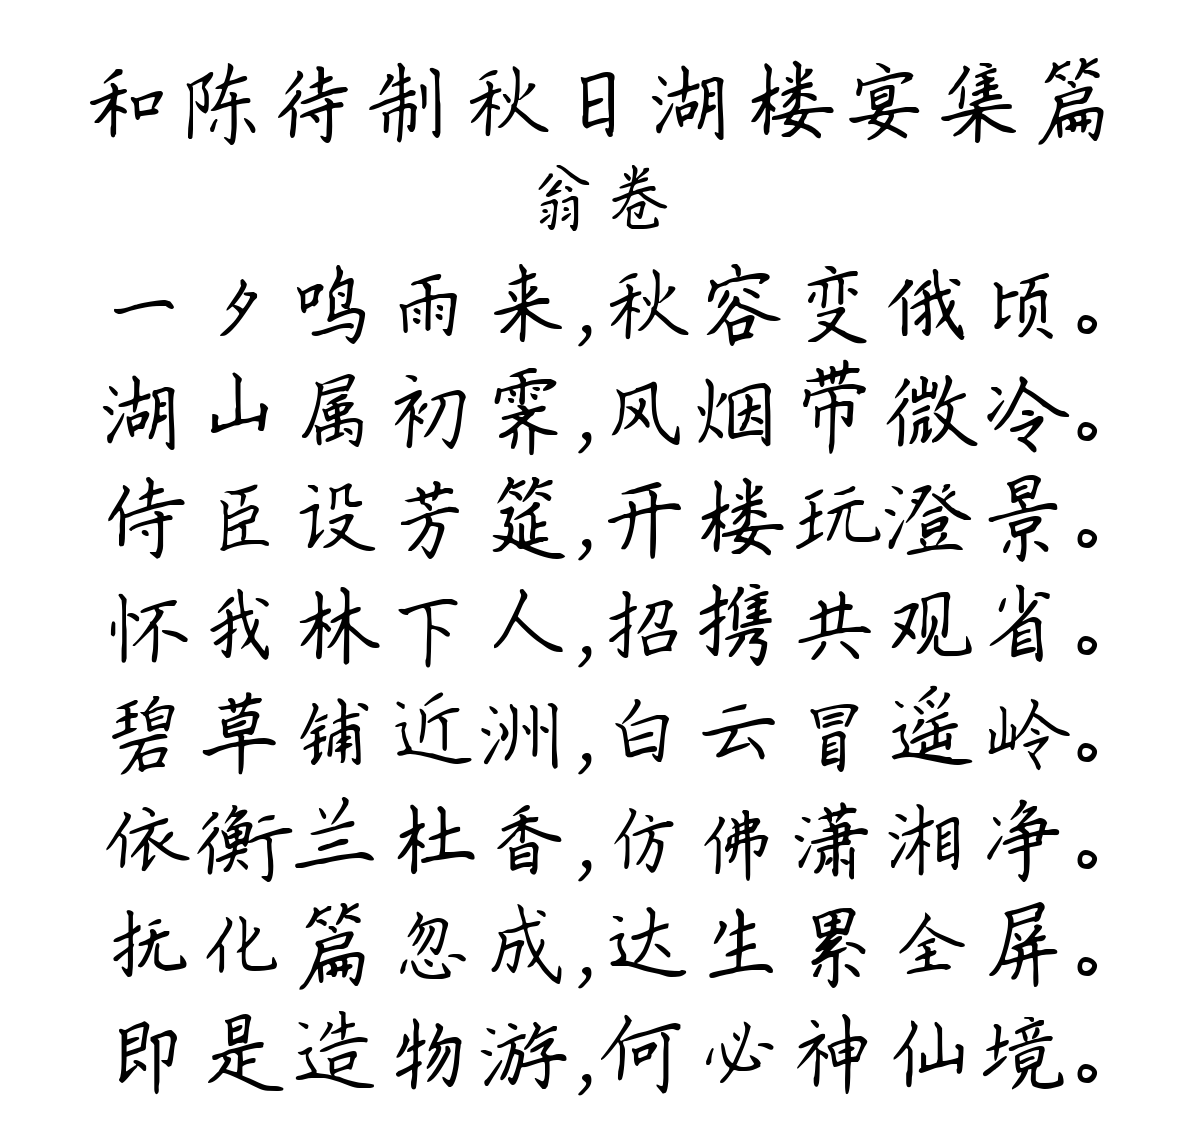 和陈待制秋日湖楼宴集篇
翁卷
一夕鸣雨来,秋容变俄顷。
湖山属初霁,风烟带微冷。
侍臣设芳筵,开楼玩澄景。
怀我林下人,招携共观省。
碧草铺近洲,白云冒遥岭。
依衡兰杜香,仿佛潇湘净。
抚化篇忽成,达生累全屏。
即是造物游,何必神仙境。